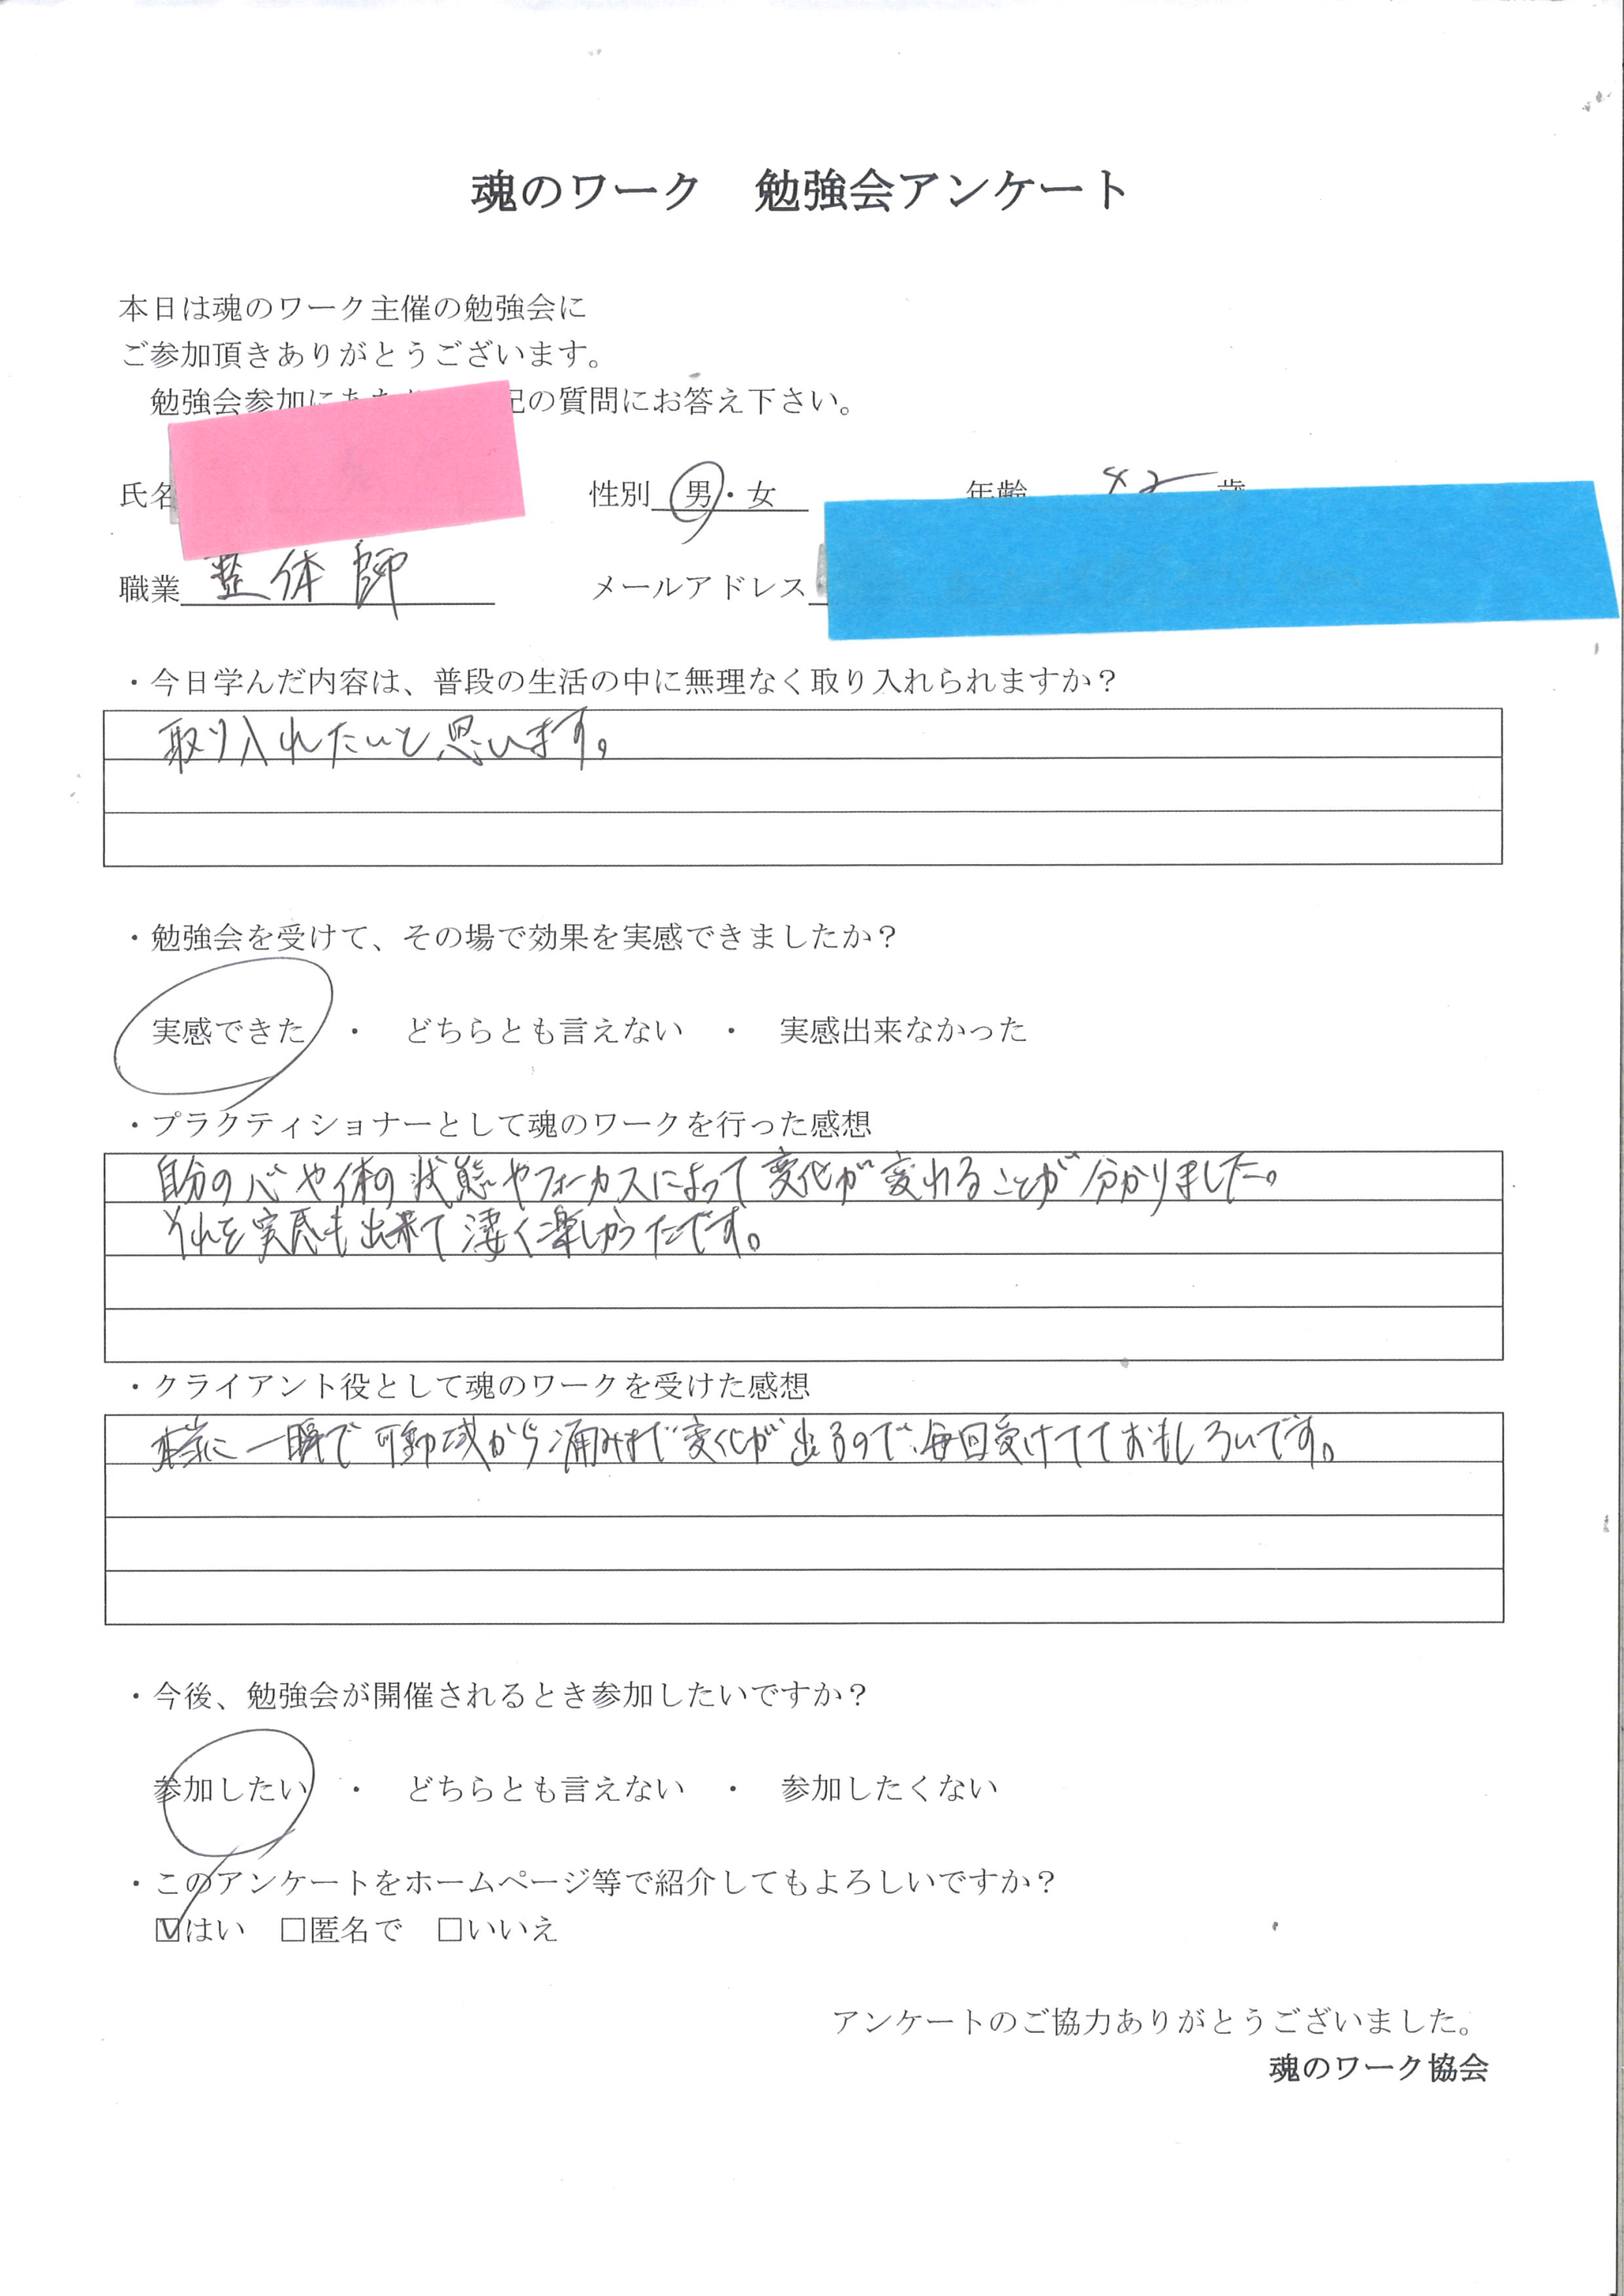 魂のワーク　勉強会アンケート
本日は魂のワーク主催の勉強会に
ご参加頂きありがとうございます。
勉強会参加にあた 記の質問にお答え下さい。
氏名 性別 男・女 年齢 42 歳
職業 整体師 メールアドレス
・今日学んだ内容は、普段の生活の中に無理なく取り入れられますか？
取り入れたいと思います。
・勉強会を受けて、その場で効果を実感できましたか？
実感できた ・ どちらとも言えない ・ 実感出来なかった
・プラクティショナーとして魂のワークを行った感想
自分の心や体の状態やフォーカスによって変化が変れることが分かりました。
それを実感も出来て凄く楽しかったです。
・クライアント役として魂のワークを受けた感想
本当に一瞬で可動域から痛みまで変化が出るので、毎回受けてておもしろいです。
・今後、勉強会が開催されるとき参加したいですか？
参加したい ・ どちらとも言えない ・ 参加したくない
・このアンケートをホームページ等で紹介してもよろしいですか？
☑はい □匿名で □いいえ
アンケートのご協力ありがとうございました。
魂のワーク協会